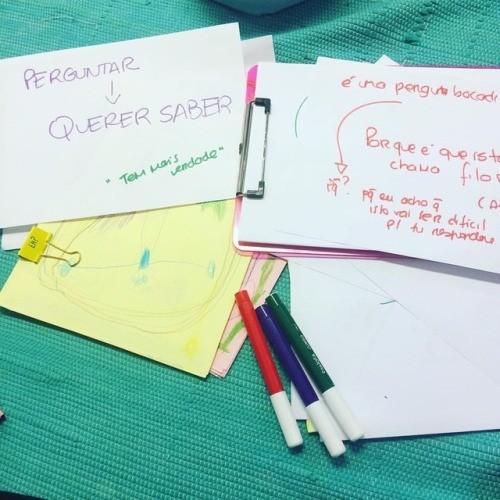 PERGUNTAR
↓
QUERER SABER
"Tem mais
verdade"
é uma pergunta bocadi
Porque é que isto
chama filos
p̃q?
p̃q eu acho q̃
isto vai ser difícil
p/ tu responderes